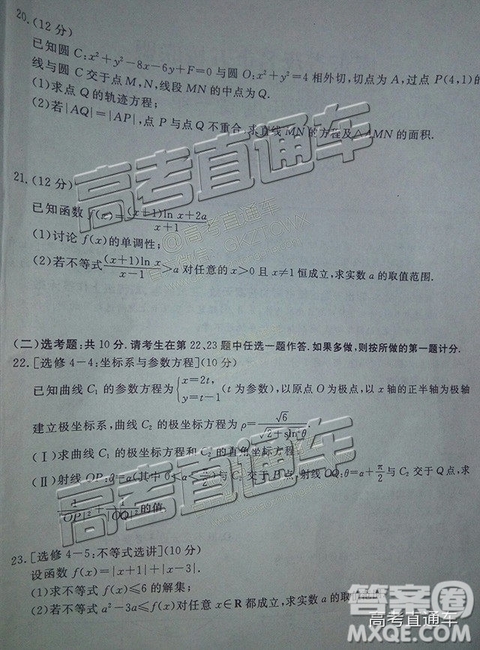 20.(12分)
已知圆 C:x²+y²-8x-6y+F=0 与圆 O:x²+y²=4 相外切,切点为 A,过点 P(4,1)的
线与圆 C 交于点 M,N,线段 MN 的中点为 Q.
(1)求点 Q 的轨迹方程;
(2)若|AQ|=|AP|,点 P 与点 Q 不重合,求直线 MN 的方程及△AMN 的面积.
21.(12分)
已知函数 f(x)=((x+1)ln x+2a)/(x+1)
(1)讨论 f(x)的单调性;
(2)若不等式 ((x+1)ln x)/(x-1)>a 对任意的 x>0 且 x≠1 恒成立,求实数 a 的取值范围.
(二)选考题:共 10 分. 请考生在第 22、23 题中任选一题作答. 如果多做,则按所做的第一题计分.
22.[选修 4-4:坐标系与参数方程](10 分)
已知曲线 C₁ 的参数方程为{x=2t, y=t-1 (t 为参数),以原点 O 为极点,以 x 轴的正半轴为极轴
建立极坐标系,曲线 C₂ 的极坐标方程为 ρ=
(Ⅰ)求曲线 C₁ 的极坐标方程和 C₂ 的直角坐标方程;
(Ⅱ)射线 OP:θ=α(其中 0<α< )与 C₂ 交于 P 点,射线 OQ:θ=α+π/2 与 C₂ 交于 Q 点,求
1/|OP|²+1/|OQ|² 的值.
23.[选修 4-5:不等式选讲](10 分)
设函数 f(x)=|x+1|+|x-3|.
(1)求不等式 f(x)≤6 的解集;
(2)若不等式 a²-3a≤f(x)对任意 x∈R 都成立,求实数 a 的取值范围.
高考直通车
@高考直通车
高考直通车
答案圈
高考直通车
MXQE.COM